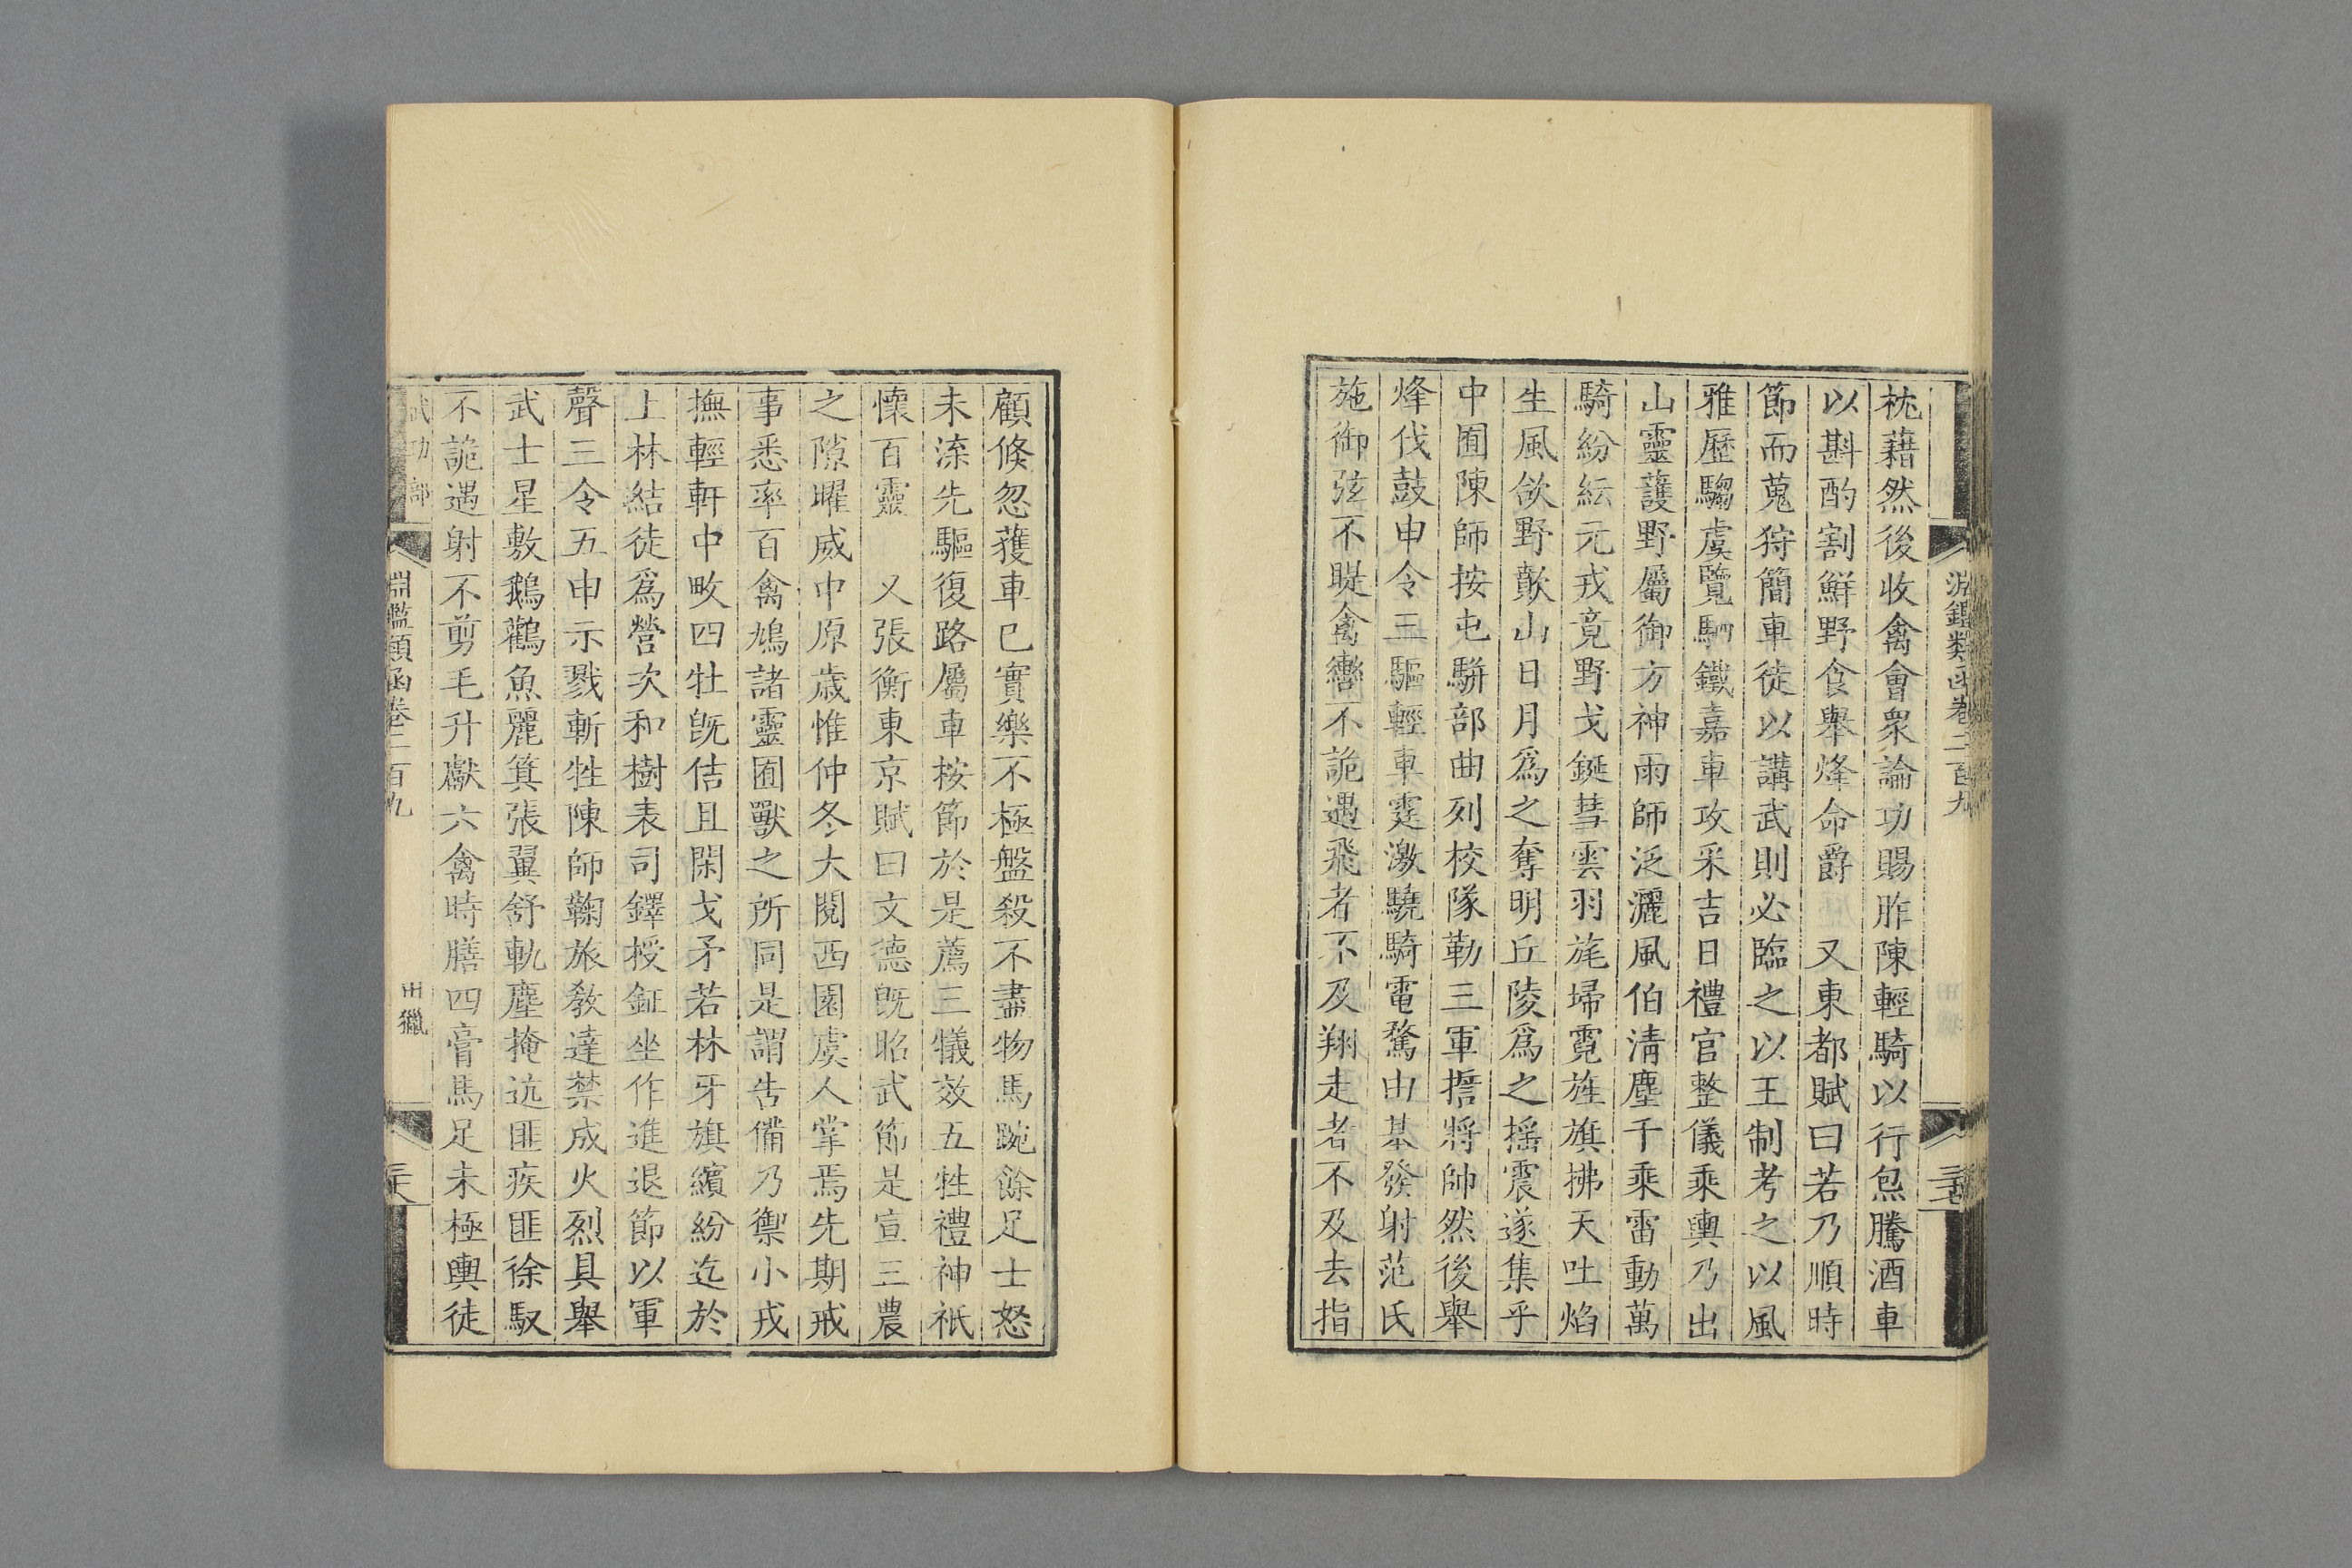 淵鑑類函卷二百九
枕藉然後收禽會衆論功賜胙陳輕騎以行炰騰酒車
以斟酌割鮮野食舉烽命爵 又東都賦曰若乃順時
節而蒐狩簡車徒以講武則必臨之以王制考之以風
雅歷騶虞覽駟鐵嘉車攻采吉日禮官整儀乘輿乃出
山靈護野屬御方神雨師泛灑風伯清塵千乘雷動萬
騎紛紜元戎竟野戈鋋彗雲羽旄埽霓旌旗拂天吐焰
生風欱野歕山日月爲之奪明丘陵爲之搖震遂集乎
中囿陳師按屯駢部曲列校隊勒三軍誓將帥然後舉
烽伐鼓申令三驅輕車霆激驍騎電騖由基發射范氏
施御弦不睼禽轡不詭遇飛者不及翔走者不及去指
顧倏忽獲車已實樂不極盤殺不盡物馬踠餘足士怒
未渫先驅復路屬車按節於是薦三犧效五牲禮神祇
懷百靈 又張衡東京賦曰文德旣昭武節是宣三農
之隙曜威中原歲惟仲冬大閱西園虞人掌焉先期戒
事悉率百禽鳩諸靈囿獸之所同是謂告備乃禦小戎
撫輕軒中畋四牡旣佶且閑戈矛若林牙旗繽紛迄於
上林結徒爲營次和樹表司鐸授鉦坐作進退節以軍
聲三令五申示戮斬牲陳師鞠旅敎達禁成火烈具舉
武士星敷鵝鸛魚麗箕張翼舒軌塵掩迒匪疾匪徐馭
不詭遇射不剪毛升獻六禽時膳四膏馬足未極輿徒
武功部
淵鑑類函卷二百九
田獵